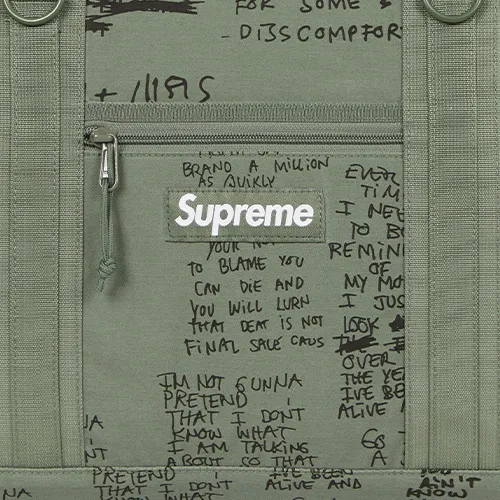 FOR SOME &
- DISCOMFOR
BRAND A MILLION
AS QUIKLY
Supreme
YOUR
TO BLAME YOU
CAN DIE AND
YOU WILL LURN
THAT DEAT IS NOT
FINAL SALE CAUS
I'M NOT GUNNA
PRETEND
THAT I DON'T
KNOW WHAT
I AM TALKING
ABOUT SO THAT
EVER
TIM
I NEE
TO B
REMIN
OF
MY MO
I JUS
LOOK
OVER
THE YE
I'VE BE
ALIVE
A
PRETEND
THAT I DON'T
I'VE BEEN
ALIVE AND
YOU
AIN'T
KNOW